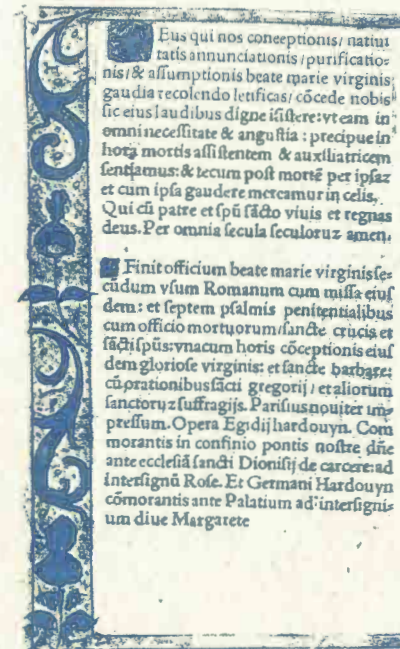 Deus qui nos conceptionis/ natiui
tatis annunciationis/purificatio-
nis/& assumptionis beate marie virginis
gaudia recolendo letificas/ cōcede nobis
sic eius laudibus digne īsistere: vt eam in
omni necessitate & angustia : precipue in
hora mortis assistentem & auxiliatricem
sentiamus: & tecum post mortē per ipsaz
et cum ipsa gaudere mereamur in celis.
Qui cū patre et spū sācto viuis et regnas
deus. Per omnia secula seculoruz amen.
Finit officium beate marie virginis se-
cūdum vsum Romanum cum missa eius
dem: et septem psalmis penitentialibus
cum officio mortuorum/ sancte crucis et
sācti spūs: vnacum horis cōceptionis eius
dem gloriose virginis: et sancte barbare:
cū orationibus sācti gregorij/ et aliorum
sanctoruz suffragijs. Parisius nouiter im-
pressum. Opera Egidij hardouyn. Com
morantis in confinio pontis nostre dn̄e
ante ecclesiā sancti Dionisij de carcere: ad
intersignū Rose. Et Germani Hardouyn
cōmorantis ante Palatium ad intersigni-
um diue Margarete